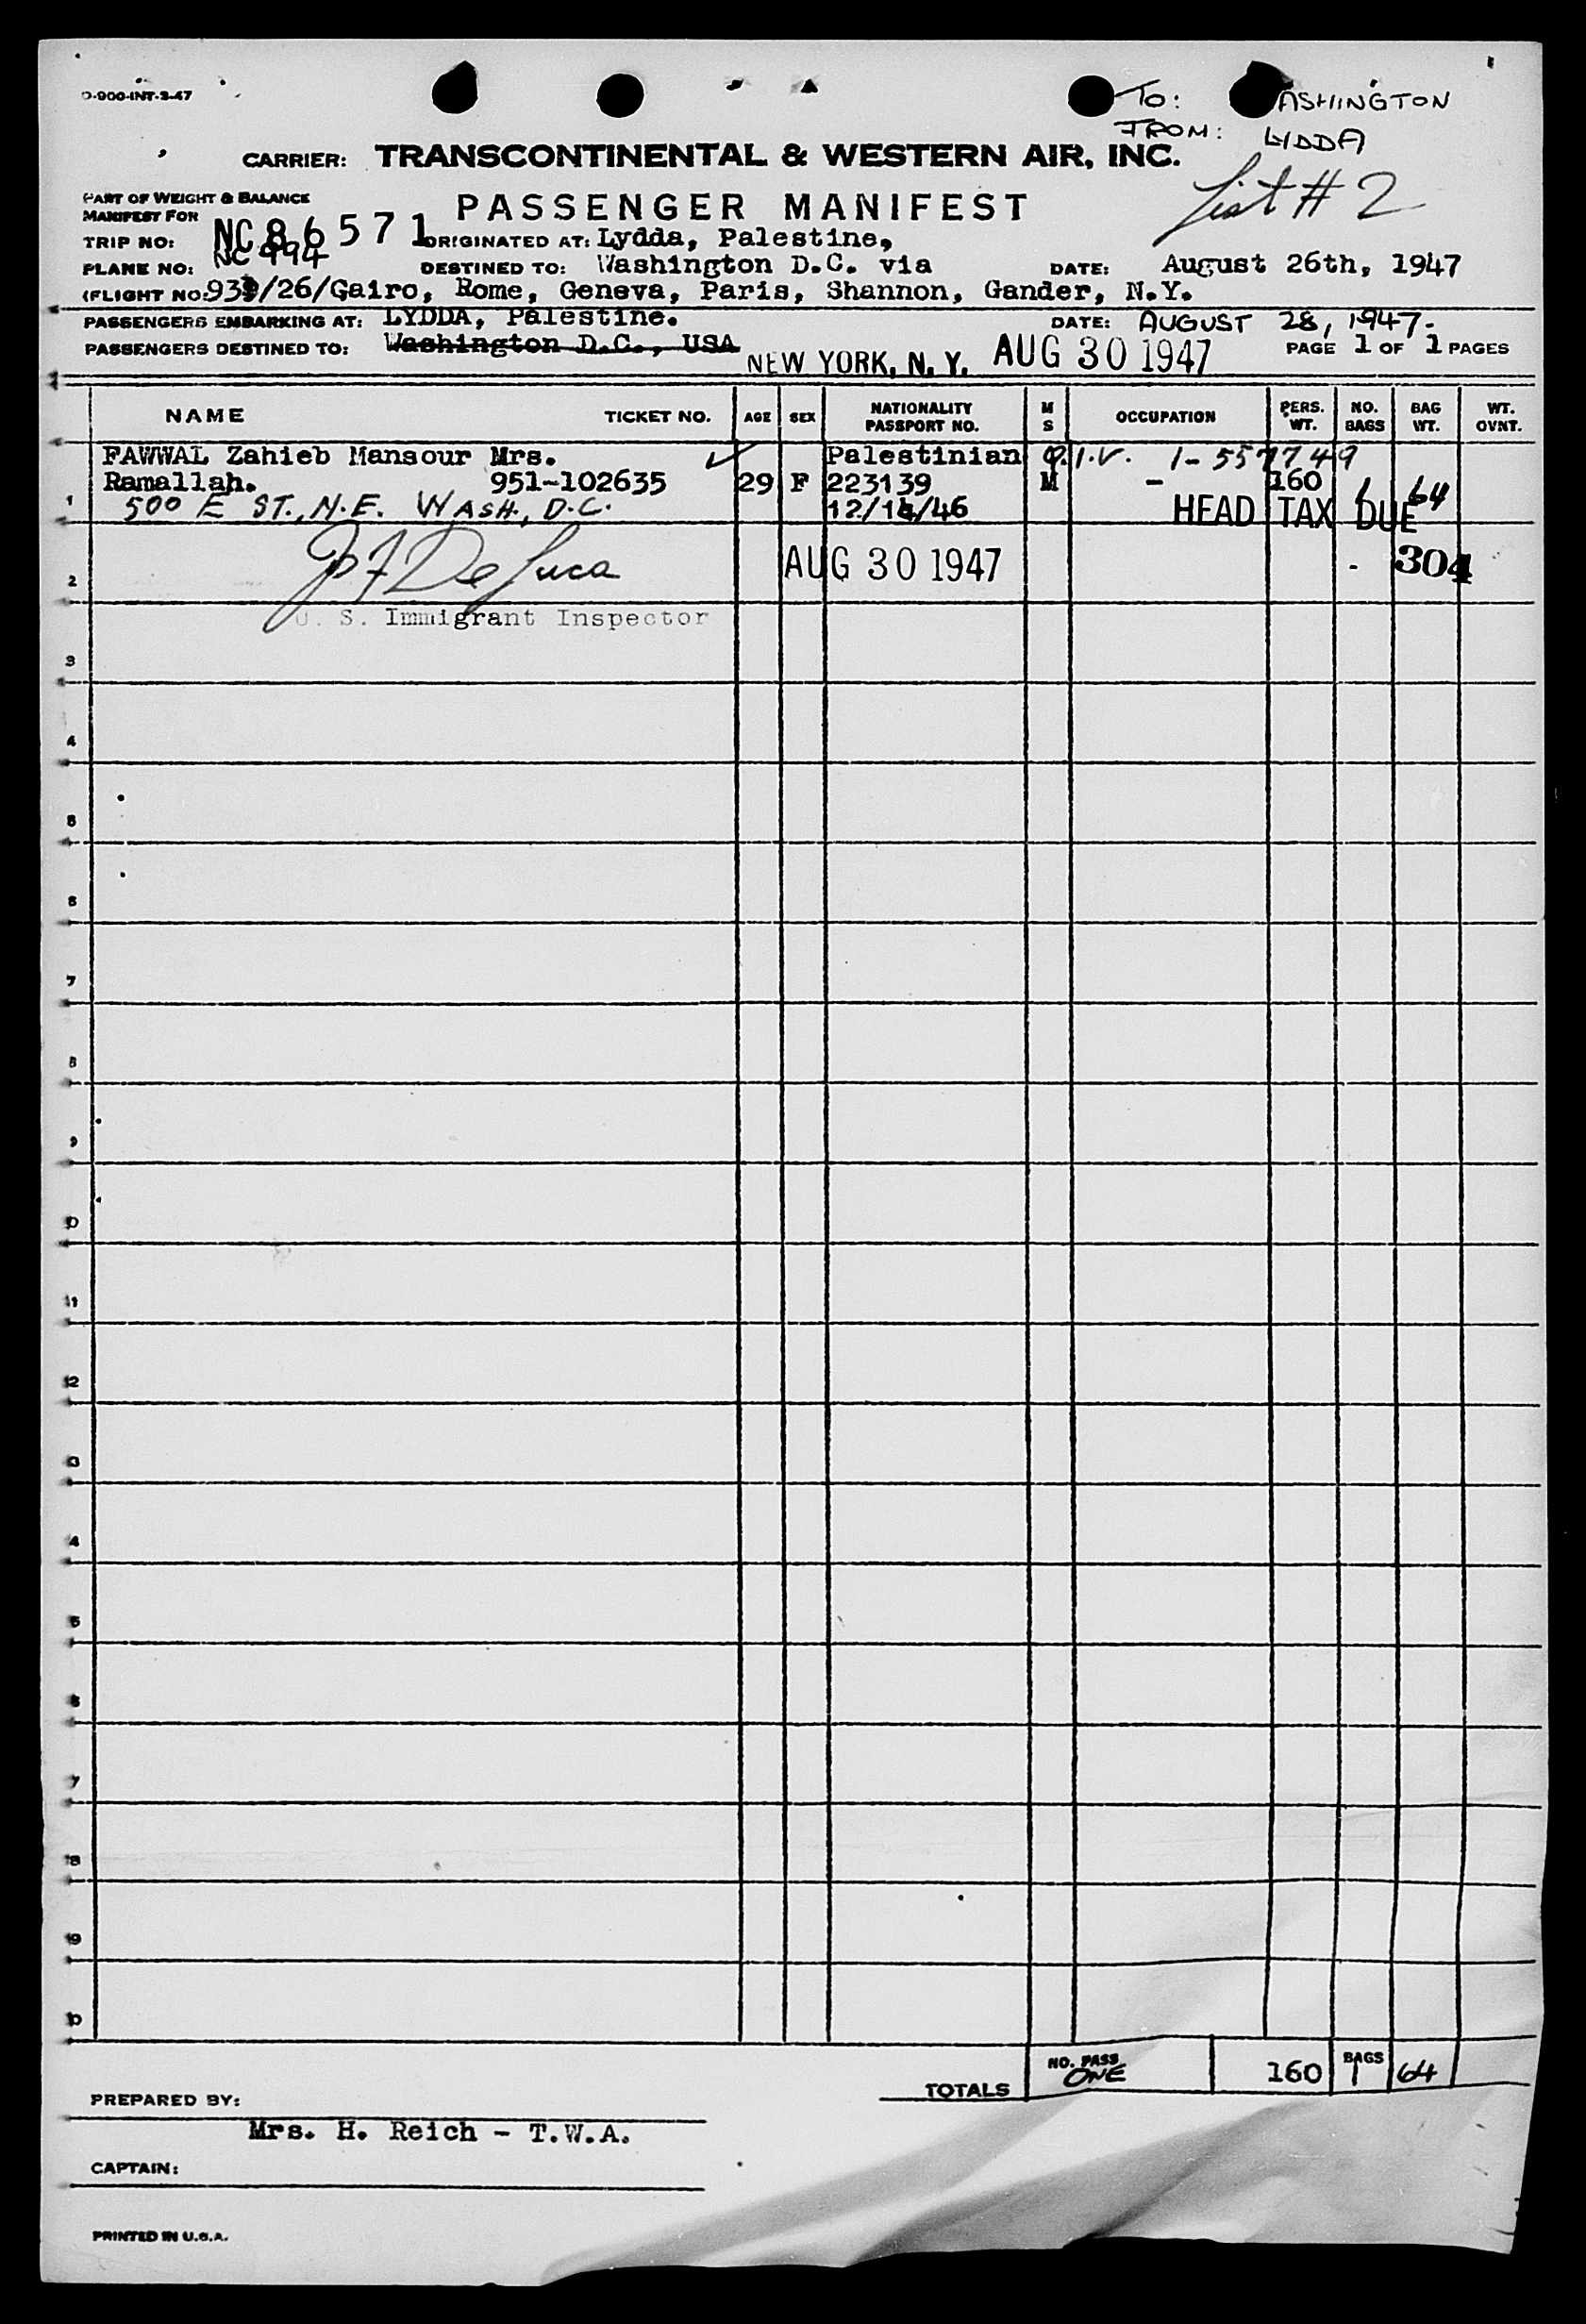 O-900-INT-3-47
TO: WASHINGTON
FROM: LYDDA
CARRIER: TRANSCONTINENTAL & WESTERN AIR, INC.
List # 2
PART OF WEIGHT & BALANCE
MANIFEST FOR
PASSENGER MANIFEST
TRIP NO: NC86571 ORIGINATED AT: Lydda, Palestine,
PLANE NO: NC 494 DESTINED TO: Washington D.C. via DATE: August 26th, 1947
(FLIGHT NO: /26/Cairo, Rome, Geneva, Paris, Shannon, Gander, N.Y.
PASSENGERS EMBARKING AT: LYDDA, Palestine. DATE: AUGUST 28, 1947.
PASSENGERS DESTINED TO: Washington D.C., USA NEW YORK, N. Y. AUG 30 1947 PAGE 1 OF 1 PAGES
NAME TICKET NO. AGE SEX NATIONALITY PASSPORT NO. M S OCCUPATION PERS. WT. NO. BAGS BAG WT. WT. OVNT.
FAWWAL Zahieb Mansour Mrs. Palestinian Q.I.V. 1-557749
Ramallah. 951-102635 29 F 223139 M - 160 1 64
1 500 E ST., N.E. WASH., D.C. 12/14/46 HEAD TAX DUE
2 De Luca AUG 30 1947 - 304
U. S. Immigrant Inspector
3
4
5
6
7
8
9
10
11
12
13
14
15
16
17
18
19
20
TOTALS NO. PASS. ONE 160 BAGS 1 64
PREPARED BY:
Mrs. H. Reich - T.W.A.
CAPTAIN:
PRINTED IN U.S.A.